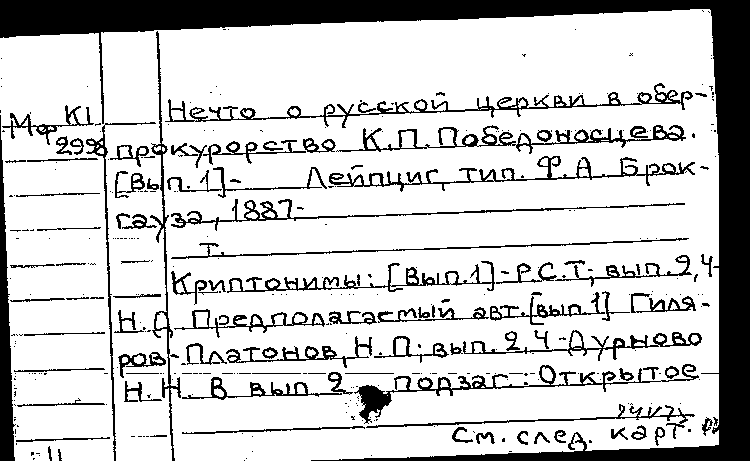 Мор КІ
2998
Нечто о русской церкви в обер-
прокурорство К.П. Победоносцева.
[Вып. 1]- Лейпциг, тип. Ф.А Брок-
гауза, 1887-
т.
Криптонимы: [Вып.1]-Р.С.Т; вып. 2,4-
Н.Д. Предполагаемый авт. [вып.1] Гиля-
ров-Платонов, Н.П; вып. 2,4-Дурново
Н.Н. В вып 2 подзаг: Открытое
См. след. карт.